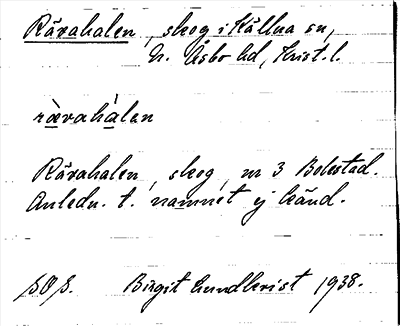 Rävahalen, skog i Källna sn,
N. Åsbo hd, Krist. l.
rävahalen
Rävahalen, skog, nr 3 Bolestad.
Anledn. t. namnet ej känd.
Birgit Lundkvist 1938.